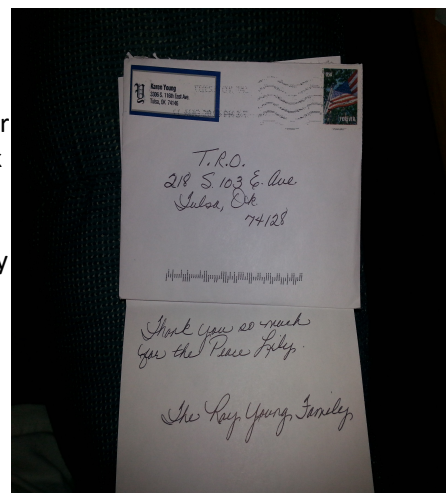 r
k
y
Y
Karen Young
Tulsa, OK 74146
FOREVER
T.R.O.
218 S. 103 E. Ave
Tulsa, Ok
74128
Thank you so much
for the Peace Lily.
The Roy Young Family